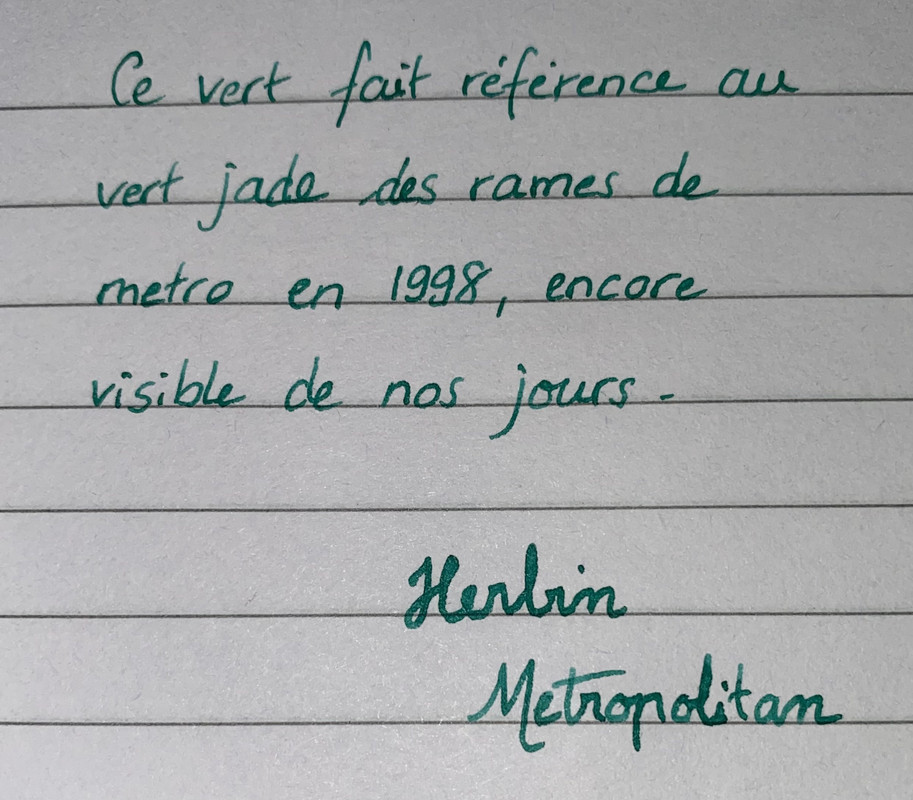 Ce vert fait référence au
vert jade des rames de
metro en 1998, encore
visible de nos jours.
Herbin
Metropolitan